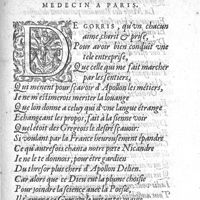 MEDECIN A PARIS.
DE GORRIS, qu'vn chacun
aime, cherit & prise,
Pour avoir bien conduit vne
tele entreprise,
Que celle qui me fait marcher
par les sentiers,
Qui ménent pour sçavoir d'Apollon les métiers,
Ie ne m'estimerois meriter la louange
Que lon donne a celuy qui d'vne langue étrange
Echangeant les propos, fait a la sienne voir
Quel étoit des Gregeois le desiré sçavoir:
Si voulant par la France heureusement épandre
Ce qui autrefois chanta notre pete Nicandre
Ie ne le te donnois, pour étre gardien
Du thresor plus cheré d'Apollon Delien.
Car alors que ce Dieu eut la plume choisie
Pour joindre la science avec la Poësie,